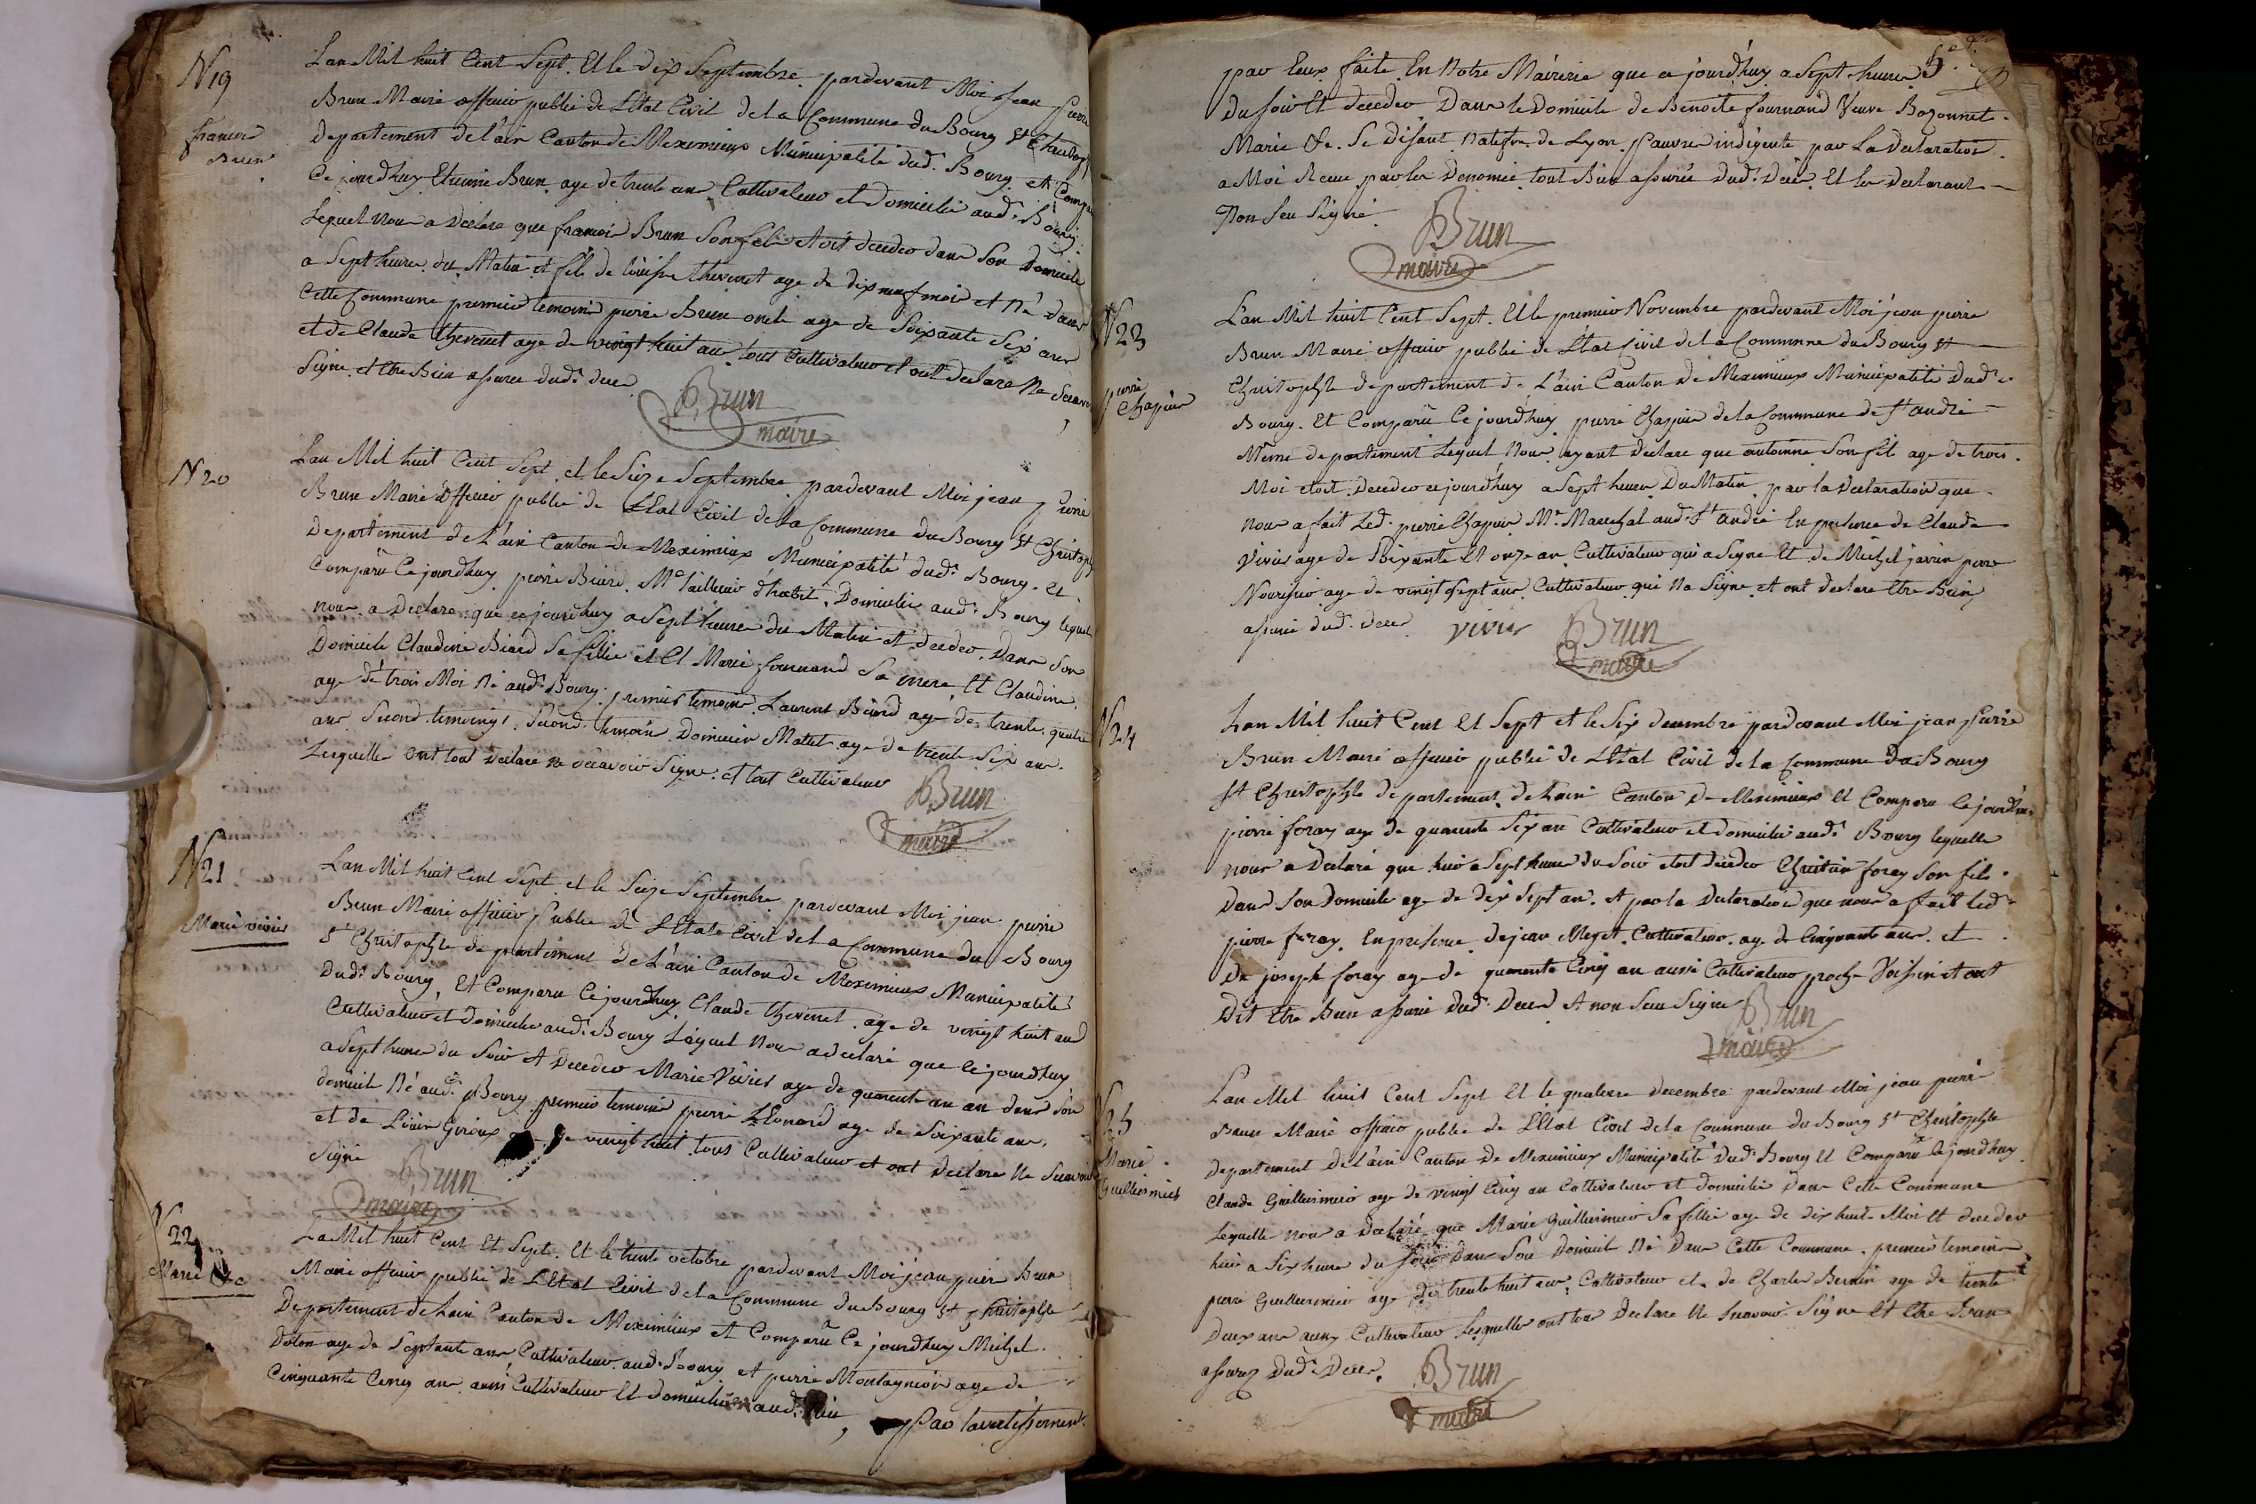 N 19
francois
Brun
Lan Mil huit Cent Sept. Et le dix Septembre pardevant Moi jean pierre
Brun Maire officier public de LEtat Civil de la Commune du Bourg St Christoph
Departement de l'ain Canton de Meximieux Municipalité dud. Bourg et Compa
Ce jourdhuy Etienne Brun age de trente ans Cultivateur et Domicilié aud. Bourg
Lequel nous a Declaré que francois Brun Son fils etoit decedeo dans Son Domicile
a Sept heures du Matin et fils de thevenet age de dix neuf mois et Né dans
Cette Commune premier temoins pierre Brun oncle age de Soixante Six ans
et de Claude thevenet age de vingt huit ans tous Cultivateur et ont declaré Ne Scavoir
Signe et Etre Bien assurée dud. deces
Brun
maire
N 20
Lan Mil huit Cent Sept et le Seize Septembre pardevant Moi jean pierre
Brun Maire officier public de LEtat Civil de la Commune du Bourg St Christoph
Departement de L'ain Canton de Meximieux Municipalité dud. Bourg. Et
Comparu Ce jourdhuy pierre Biard Me tailleur d'habit, Domicilié aud. Bourg lequel
nous a Declaré que ce jourdhuy a Sept heures du Matin et decedeo Dans Son
Domicile Claudine Biard Sa fillie et Et Marie fournand Sa mere Et Claudine
age de trois Moi Né aud. Bourg. premier temoins Laurent Biard age de trente quatre
ans Second temoings Second temoin Dominier Matel age de trente Six ans.
Lesquelles ont tout Declare ne Scavoir Signe et tout Cultivateur
Brun
maire
N 21
Marie vivier
Lan Mil huit Cent Sept et le Seize Septembre pardevant Moi jean pierre
Brun Maire officier public de LEtat Civil de la Commune du Bourg
St Christophle departement de L'ain Canton de Meximieux Municipalité
Dud. Bourg, Et Comparu Ce jourdhuy Claude thevenet age de vingt huit ans
Cultivateur et domicilié aud. Bourg Lequel Nous a declaré que Ce jourdhuy
a Sept heures du Soir et Decedeo Marie Vivier age de quarente un an dans Son
domicil Né aud. Bourg premier temoins pierre Leonard age de Soixante ans,
et de Giroux de vingt huit tous Cultivateur et ont declaré Ne Scavoir
Signe
Brun
maire
N 22
Marie &c
La Mil huit Cent Et Sept. Et le trente octobre pardevant Moi jean pierre Brun
Maire officier public de LEtat Civil de la Commune du Bourg St Christophle
Departement de Lain Canton de Meximieux et Comparu Ce jourdhuy Michel
age de Septante ans Cultivateur aud. Bourg et pierre Montagnieux age de
Cinquante Cinq ans aussi Cultivateur Et domicilié aud. lieu,
Par
par Eux faite En Notre Mairerie que ce jourdhuy a Sept heures
Du Soir Et decedeo Dans le Domicile de Benoite fournand Veuve Bozonnet
Marie &c. Se Disant de Lyon Pauvre indigente par La declaration
a Moi Recue par les Denomie tout Bien assurée Dud. Deces Et les Declarant
Non Seu Signe
Brun
maire
N 23
pierre
Chapuis
L'an Mil huit Cent Sept. Et le premier Novembre pardevant Moi jean pierre
Brun Maire officier public de LEtat Civil de la Commune du Bourg St
Christophle departement de L'ain Canton de Meximieux Municipalité Dud.
Bourg. Et Comparu Ce jourdhuy pierre Chapuis de la Commune de St andré
Même departement Lequel Nous ayant Declare que antoinne Son fils age de trois
Moi etoit Decedeo ce jourdhuy a Sept heures Du Matin par la Declaration que
Nous a fait Led. pierre Chapuis Me Marechal aud. St andré En presence de Claude
Vivier age de Soixante Et onze an Cultivateur qui a Signe Et de Michel janin pere
Nourisier age de vingt Sept ans Cultivateur qui Na Signe et ont declare Etre Bien
assurée dud. deces
vivier
Brun
maire
N 24
Lan Mil huit Cent Et Sept et le Six decembre pardevant Moi jean pierre
Brun Maire officier public de LEtat Civil de la Commune Du Bourg
St Christophle departement de Lain Canton de Meximieux Et Comparu Ce jourdhu
pierre foray age de quarente Six ans Cultivateur et domicilié aud. Bourg lequelle
nous a Declaré que hier a Sept heures du Soir etoit decedeo Christin foray Son fils
Dans Son Domicile age de dix Sept ans. et par la Declaration que nous a fait led.
pierre foray. En presence de jean Meyet Cultivateur age de Cinquante ans et
De joseph foray age de quarente Cinq an aussi Cultivateur proche Voisin et ont
Dit Etre Bien assurée Dud. Deces et non Seu Signe
Brun
maire
N 25
Marie
Guilliermier
Lan Mil huit Cent Sept Et le quatorze decembre pardevant Moi jean pierre
Brun Maire officier public de LEtat Civil de la Commune du Bourg St Christophle
Departement De L'ain Canton De Meximieux Municipalité Dud. Bourg Et Comparu Ce jourdhuy
Claude Guilliermier age de vingt Cinq an Cultivateur et domicilié Dans Cette Commune
Lequelle Nous a declaré que Marie Guilliermier Sa fillie age de dix huit Moi Et decedeo
hier a Six heures du Soir Dans Son Domicil Né Dans Cette Commune. premier temoin
pierre Guilliermier age de trente huit ans, Cultivateur et de Charles Bernin age de trente
Deux ans aussy Cultivateur Lesquelles ont tous Declare Ne Scavoir Signe Et Etre Bien
assurez Dud. Deces.
Brun
maire